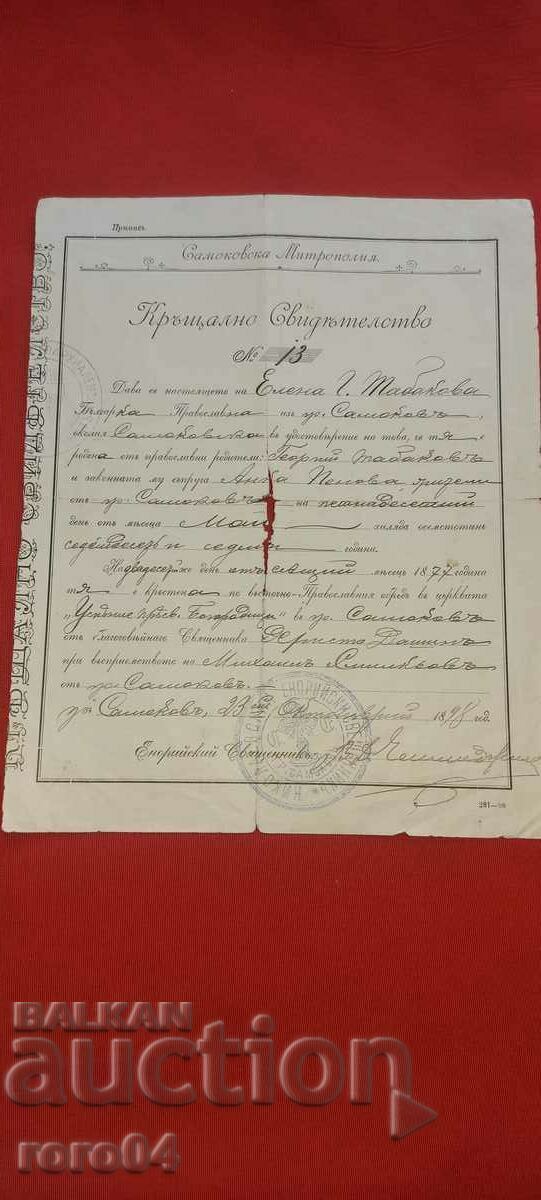 Препись
Самоковска Митрополия.
Кръщално Свидѣтелство
№ 13
Дава се настоящето на Елена Г. Табакова
Българка Православна изъ гр. Самоковъ,
околия Самоковска въ удостовѣрение на това, че тя е
родена отъ православни родители: Георгий Табаковъ
и законната му съпруга Анка Пенова
отъ гр. Самоковъ на петнадесетий
день отъ мѣсеца Май хиляда осемстотинъ
седемдесеть и седма година.
На день отъ сѫщий мѣсецъ 1877 година
тя е кръстена по въсточно-Православния обредъ въ църквата
"Успение прѣсв. Богородици" въ гр. Самоковъ
отъ благоговѣйнаго Священника Христа
при възприемството на Михаилъ
отъ гр. Самоковъ.
гр. Самоковъ, 23 Октомврий 1898 год.
Енорийский Священникъ:
281—98
КРЪЩАЛНО СВИДѢТЕЛСТВО
BALKAN
auction
roro04